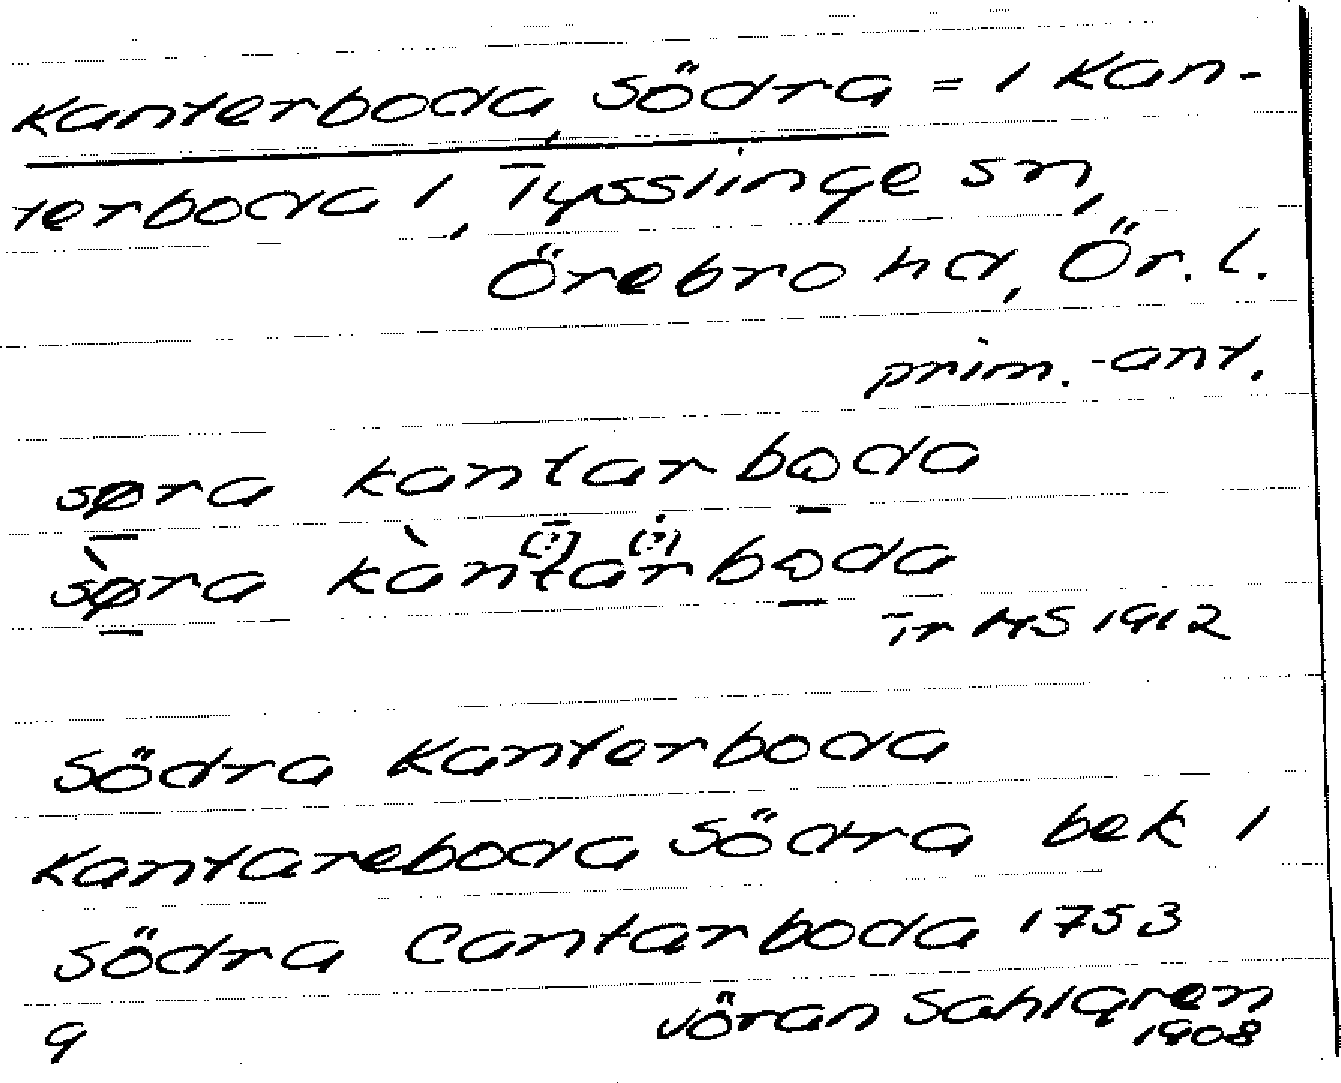 Kanterboda, Södra = 1 Kan-
terboda 1, Tysslinge sn,
Örebro hd, Ör. l.
prim.-ant.
søra kantarboda
sø̀ra kàntarboda
(?) (?)
Tr HS 1912
Södra Kanterboda
Kantareboda Södra bek 1
Södra Cantarboda 1753
Jöran Sahlgren
1908
9